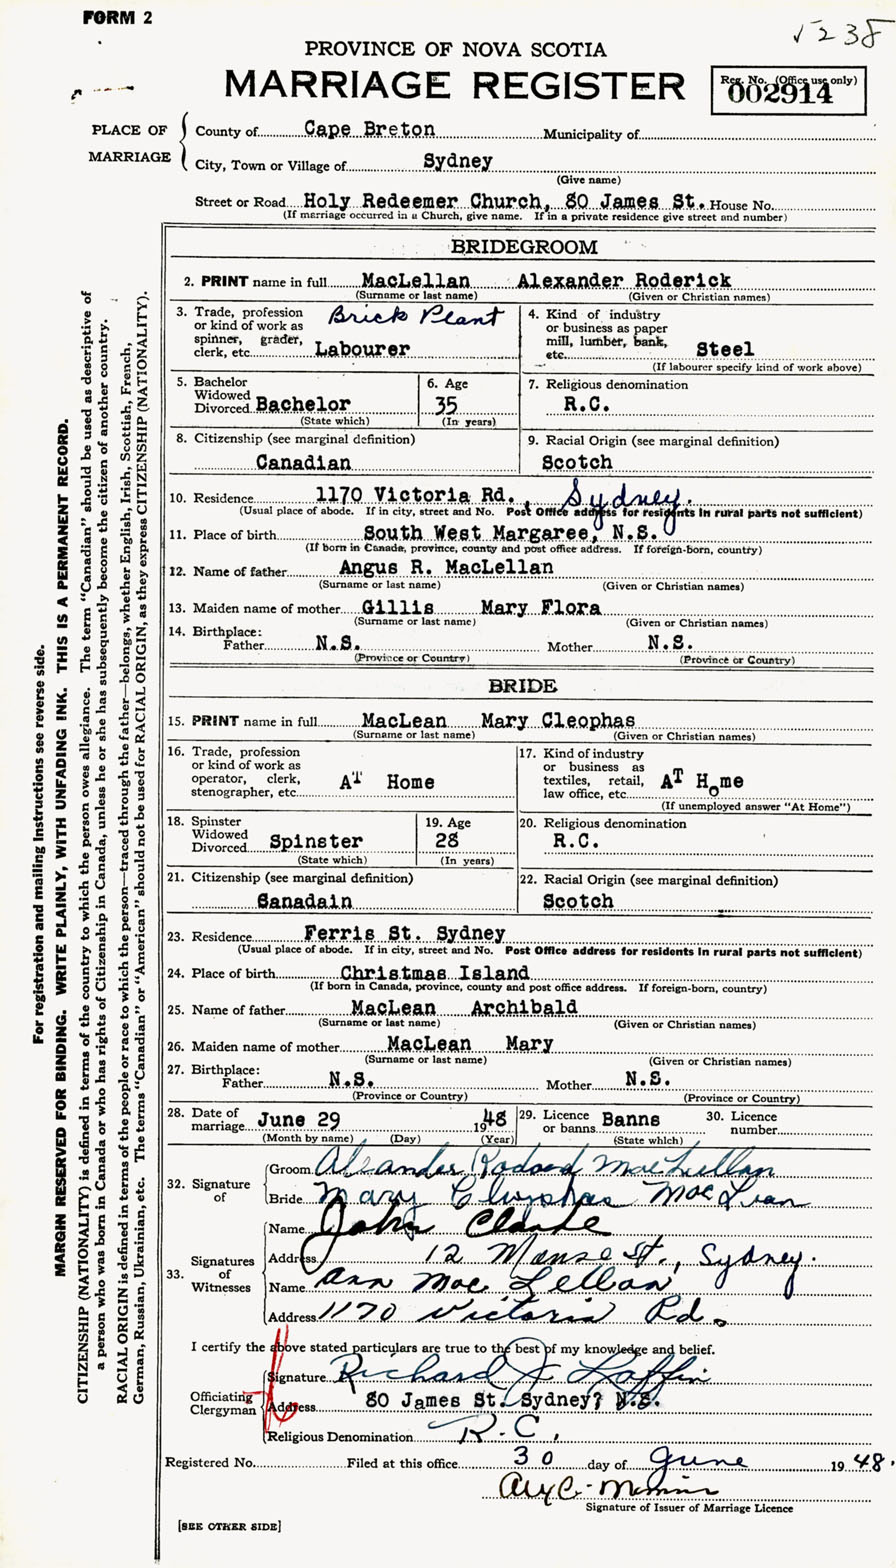 FORM 2
√238
PROVINCE OF NOVA SCOTIA
MARRIAGE REGISTER
Reg. No. (Office use only)
002914
PLACE OF MARRIAGE
County of Cape Breton Municipality of
City, Town or Village of Sydney
(Give name)
Street or Road Holy Redeemer Church, 80 James St. House No.
(If marriage occurred in a Church, give name. If in a private residence give street and number)
BRIDEGROOM
2. PRINT name in full MacLellan Alexander Roderick
(Surname or last name) (Given or Christian names)
3. Trade, profession or kind of work as spinner, grader, clerk, etc. Brick Plant Labourer
4. Kind of industry or business as paper mill, lumber, bank, etc. Steel
(If labourer specify kind of work above)
5. Bachelor Widowed Divorced Bachelor
(State which)
6. Age 35
(In years)
7. Religious denomination
R.C.
8. Citizenship (see marginal definition)
Canadian
9. Racial Origin (see marginal definition)
Scotch
10. Residence 1170 Victoria Rd., Sydney.
(Usual place of abode. If in city, street and No. Post Office address for residents in rural parts not sufficient)
11. Place of birth South West Margaree, N.S.
(If born in Canada, province, county and post office address. If foreign-born, country)
12. Name of father Angus R. MacLellan
(Surname or last name) (Given or Christian names)
13. Maiden name of mother Gillis Mary Flora
(Surname or last name) (Given or Christian names)
14. Birthplace:
Father N.S. Mother N.S.
(Province or Country) (Province or Country)
BRIDE
15. PRINT name in full MacLean Mary Cleophas
(Surname or last name) (Given or Christian names)
16. Trade, profession or kind of work as operator, clerk, stenographer, etc. AT Home
17. Kind of industry or business as textiles, retail, law office, etc. AT Home
(If unemployed answer "At Home")
18. Spinster Widowed Divorced Spinster
(State which)
19. Age 28
(In years)
20. Religious denomination
R.C.
21. Citizenship (see marginal definition)
Canadain
22. Racial Origin (see marginal definition)
Scotch
23. Residence Ferris St. Sydney
(Usual place of abode. If in city, street and No. Post Office address for residents in rural parts not sufficient)
24. Place of birth Christmas Island
(If born in Canada, province, county and post office address. If foreign-born, country)
25. Name of father MacLean Archibald
(Surname or last name) (Given or Christian names)
26. Maiden name of mother MacLean Mary
(Surname or last name) (Given or Christian names)
27. Birthplace:
Father N.S. Mother N.S.
(Province or Country) (Province or Country)
28. Date of marriage June 29 1948
(Month by name) (Day) (Year)
29. Licence or banns Banns
(State which)
30. Licence number
32. Signature of
Groom Alexander Roderick MacLellan
Bride Mary Cleophas MacLean
33. Signatures of Witnesses
Name John Clarke
Address 12 Manse St., Sydney.
Name Ann MacLellan
Address 1170 Victoria Rd.
I certify the above stated particulars are true to the best of my knowledge and belief.
Officiating Clergyman
Signature Richard J Laffin
Address 80 James St. Sydney, N.S.
Religious Denomination R.C.
Registered No. Filed at this office 30 day of June 1948.
Signature of Issuer of Marriage Licence
[SEE OTHER SIDE]
For registration and mailing instructions see reverse side.
MARGIN RESERVED FOR BINDING. WRITE PLAINLY, WITH UNFADING INK. THIS IS A PERMANENT RECORD.
CITIZENSHIP (NATIONALITY) is defined in terms of the country to which the person owes allegiance. The term "Canadian" should be used as descriptive of
a person who was born in Canada or who has rights of Citizenship in Canada, unless he or she has subsequently become the citizen of another country.
RACIAL ORIGIN is defined in terms of the people or race to which the person—traced through the father—belongs, whether English, Irish, Scottish, French,
German, Russian, Ukrainian, etc. The terms "Canadian" or "American" should not be used for RACIAL ORIGIN, as they express CITIZENSHIP (NATIONALITY).